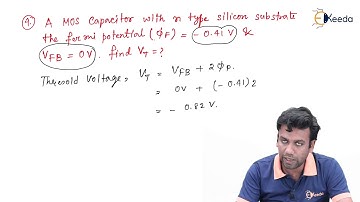 Q. A MOS Capacitor with n type silicon substrate
the fermi potential (ϕF) = -0.41V &
VFB = 0V. find VT = ?
Threshold Voltage, VT = VFB + 2ϕF.
= 0V + (-0.41)2
= - 0.82 V.
Ekeeda
Ekeeda